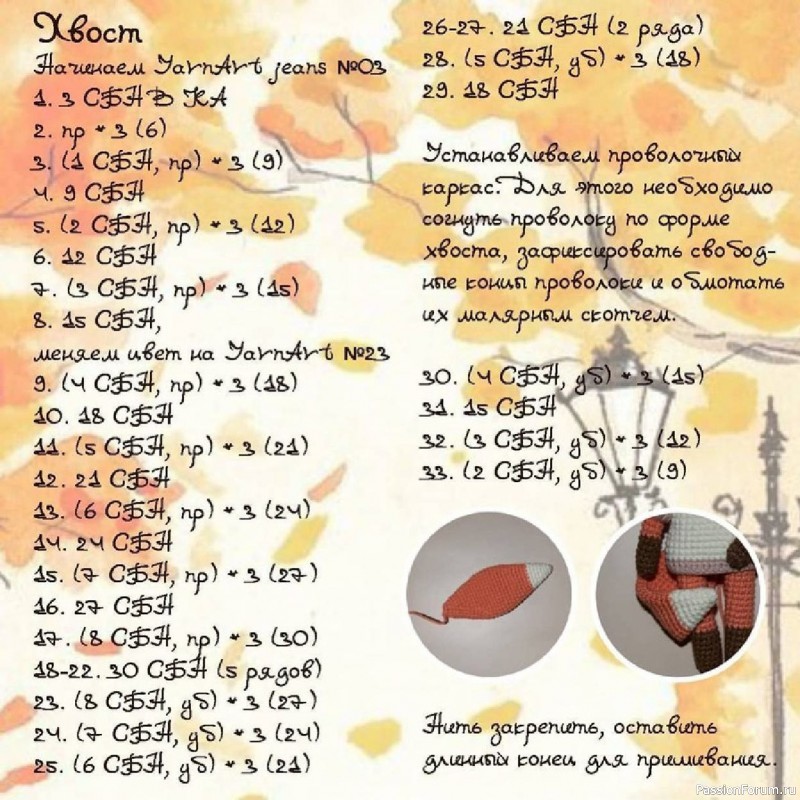 Хвост
Начинаем YarnArt jeans №03
1. 3 СБН В КА
2. пр * 3 (6)
3. (1 СБН, пр) * 3 (9)
4. 9 СБН
5. (2 СБН, пр) * 3 (12)
6. 12 СБН
7. (3 СБН, пр) * 3 (15)
8. 15 СБН,
меняем цвет на YarnArt №23
9. (4 СБН, пр) * 3 (18)
10. 18 СБН
11. (5 СБН, пр) * 3 (21)
12. 21 СБН
13. (6 СБН, пр) * 3 (24)
14. 24 СБН
15. (7 СБН, пр) * 3 (27)
16. 27 СБН
17. (8 СБН, пр) * 3 (30)
18-22. 30 СБН (5 рядов)
23. (8 СБН, уб) * 3 (27)
24. (7 СБН, уб) * 3 (24)
25. (6 СБН, уб) * 3 (21)
26-27. 21 СБН (2 ряда)
28. (5 СБН, уб) * 3 (18)
29. 18 СБН
Устанавливаем проволочный
каркас. Для этого необходимо
согнуть проволоку по форме
хвоста, зафиксировать свобод-
ные концы проволоки и обмотать
их малярным скотчем.
30. (4 СБН, уб) * 3 (15)
31. 15 СБН
32. (3 СБН, уб) * 3 (12)
33. (2 СБН, уб) * 3 (9)
Нить закрепить, оставить
длинный конец для пришивания.
PassionForum.ru